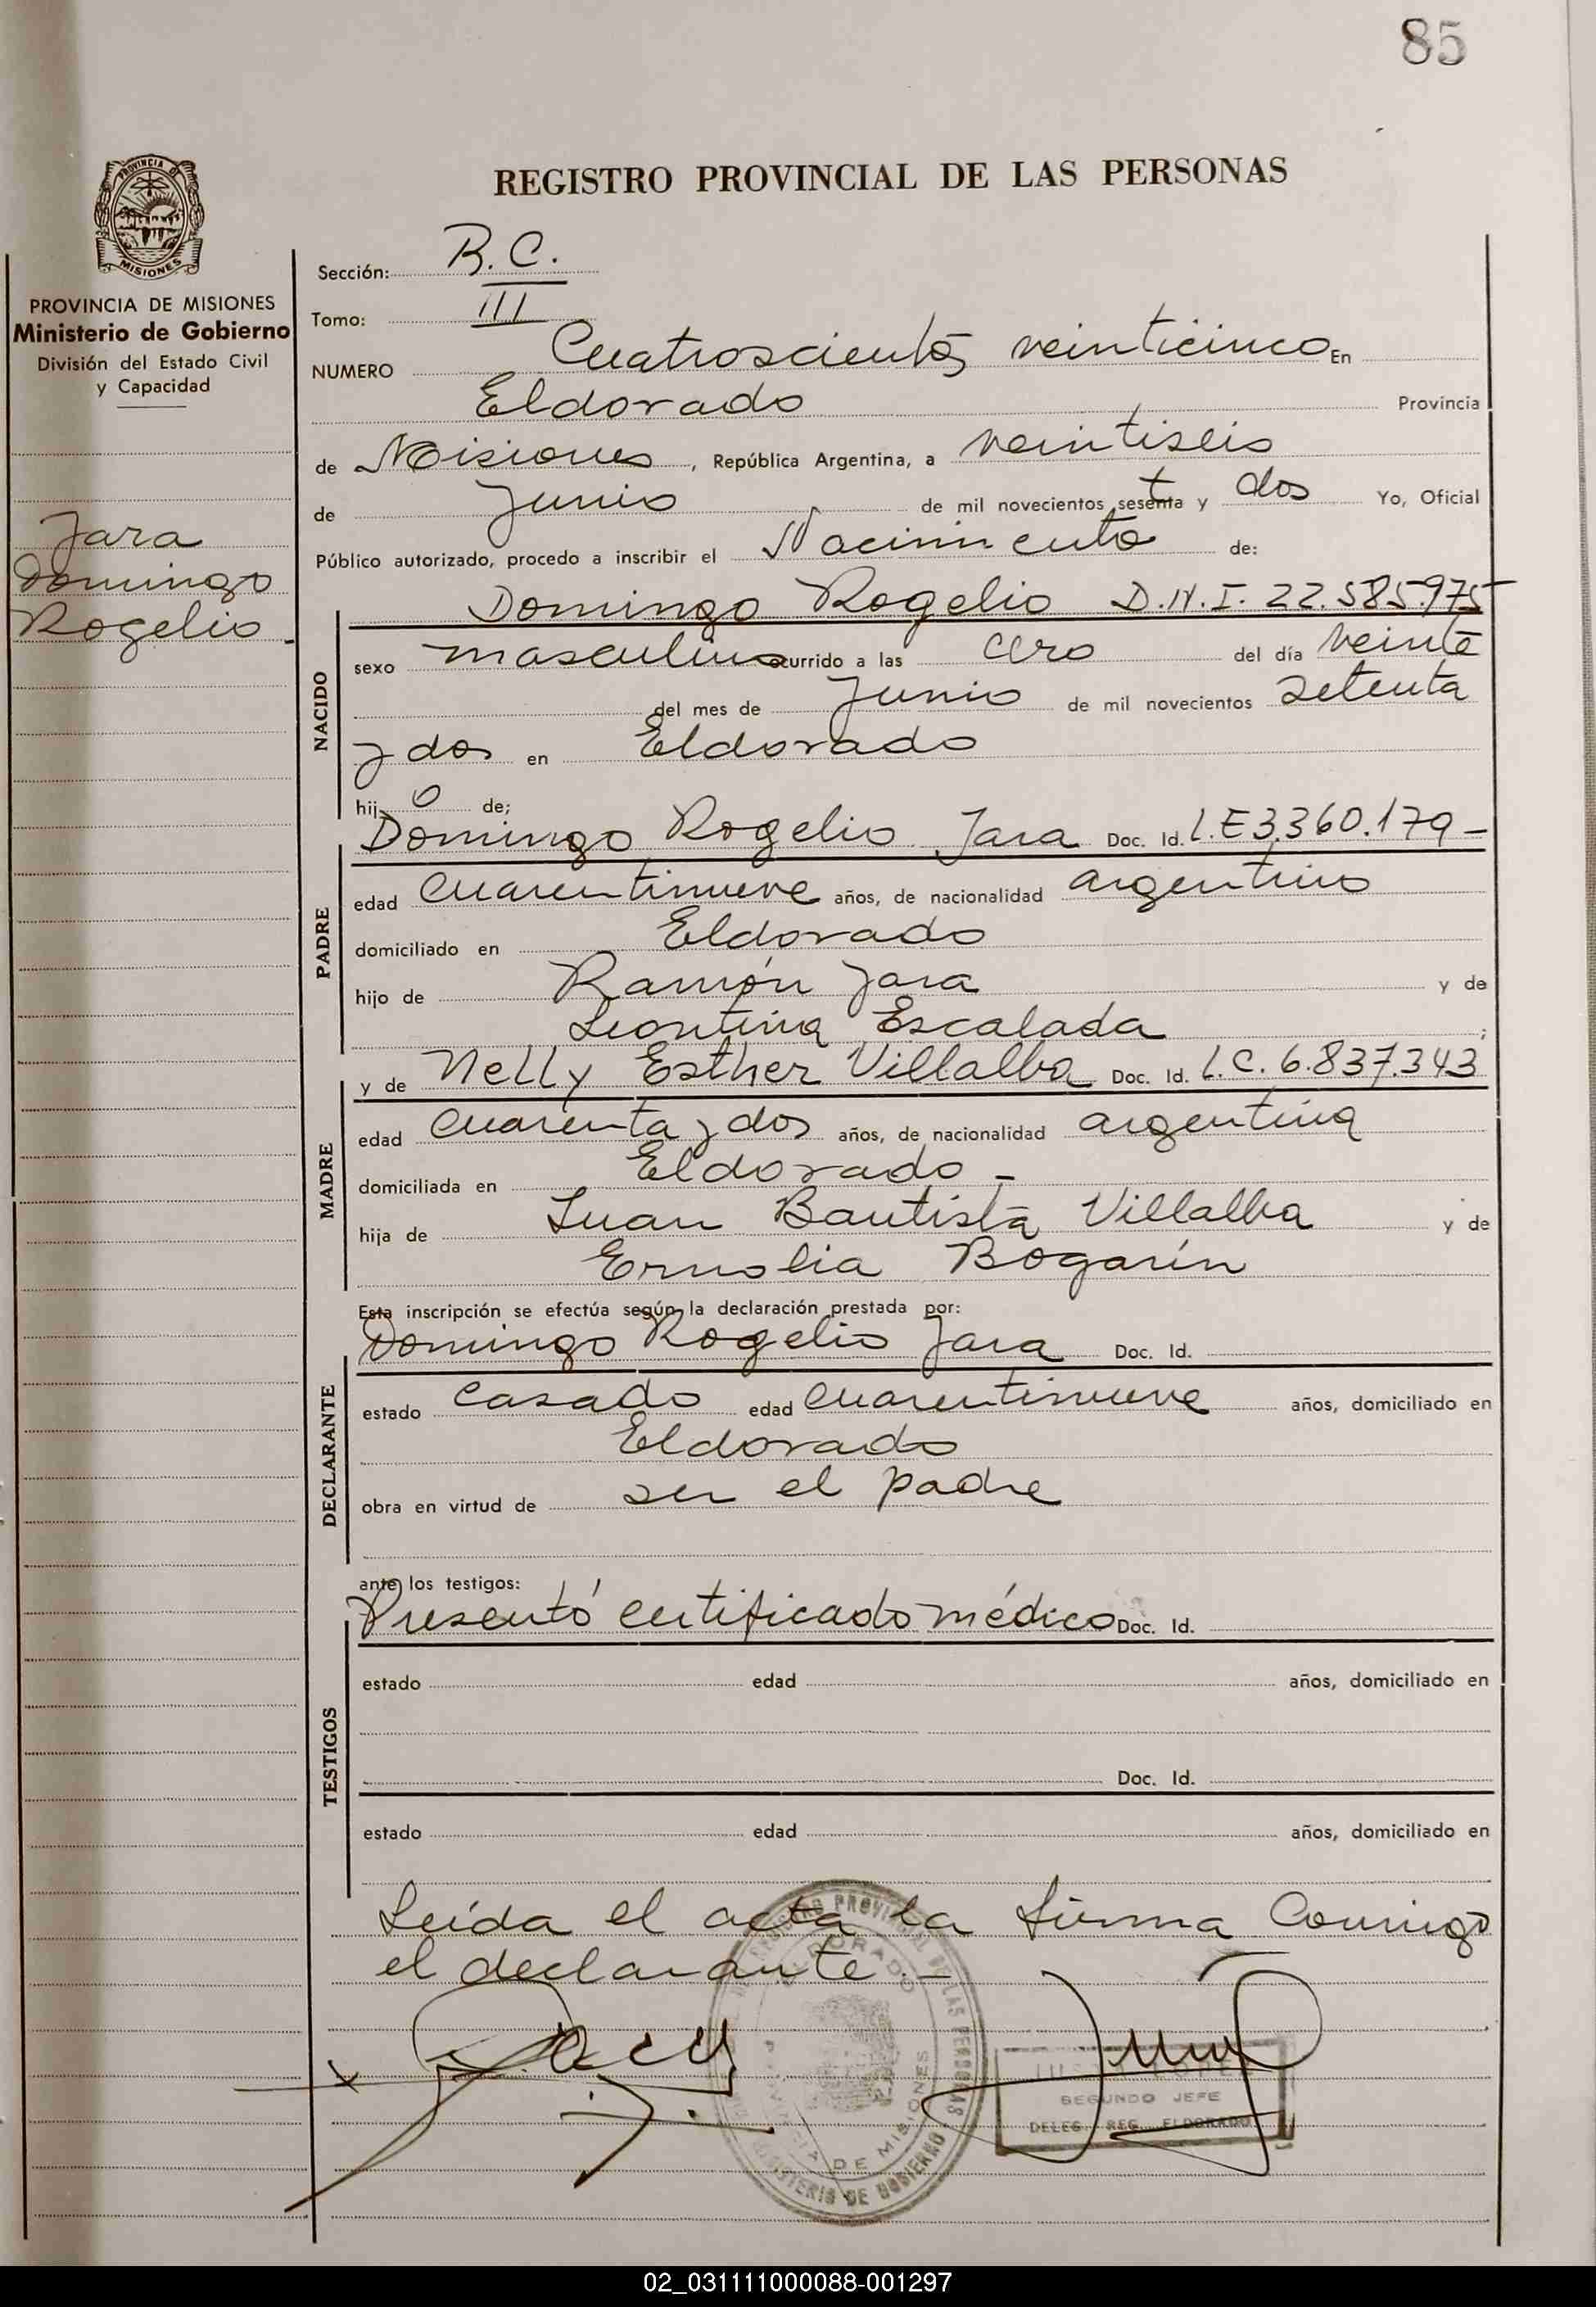 85
REGISTRO PROVINCIAL DE LAS PERSONAS
PROVINCIA DE
MISIONES
PROVINCIA DE MISIONES
Ministerio de Gobierno
División del Estado Civil
y Capacidad
Jara
Domingo
Rogelio.
Sección: R.C.
Tomo: III
NUMERO Cuatroscientos veinticinco En
Eldorado Provincia
de Misiones, República Argentina, a veintiseis
de Junio de mil novecientos sesenta y dos Yo, Oficial
Público autorizado, procedo a inscribir el Nacimiento de:
NACIDO
Domingo Rogelio D.N.I. 22.585.975
sexo masculino ocurrido a las cero del día veinte
del mes de Junio de mil novecientos setenta
y dos en Eldorado
hij o de;
PADRE
Domingo Rogelio Jara Doc. Id. L.E 3.360.179 -
edad cuarentinueve años, de nacionalidad argentino
domiciliado en Eldorado
hijo de Ramón Jara y de
Leontina Escalada ;
MADRE
y de Nelly Esther Villalba Doc. Id. L.C. 6.837.343
edad cuarenta y dos años, de nacionalidad argentina
domiciliada en Eldorado -
hija de Juan Bautista Villalba y de
Ernolia Bogarín
Esta inscripción se efectúa según la declaración prestada por:
DECLARANTE
Domingo Rogelio Jara Doc. Id.
estado casado edad cuarentinueve años, domiciliado en
Eldorado
obra en virtud de ser el padre
ante los testigos:
TESTIGOS
Presentó certificado médico Doc. Id.
estado edad años, domiciliado en
Doc. Id.
estado edad años, domiciliado en
Leída el acta la firma Conmigo
el declarante. -
REGISTRO PROVINCIAL DE LAS PERSONAS
ELDORADO
PROVINCIA DE MISIONES
MINISTERIO DE GOBIERNO
LOPEZ
SEGUNDO JEFE
DELEG. REG. ELDORADO
02_031111000088-001297